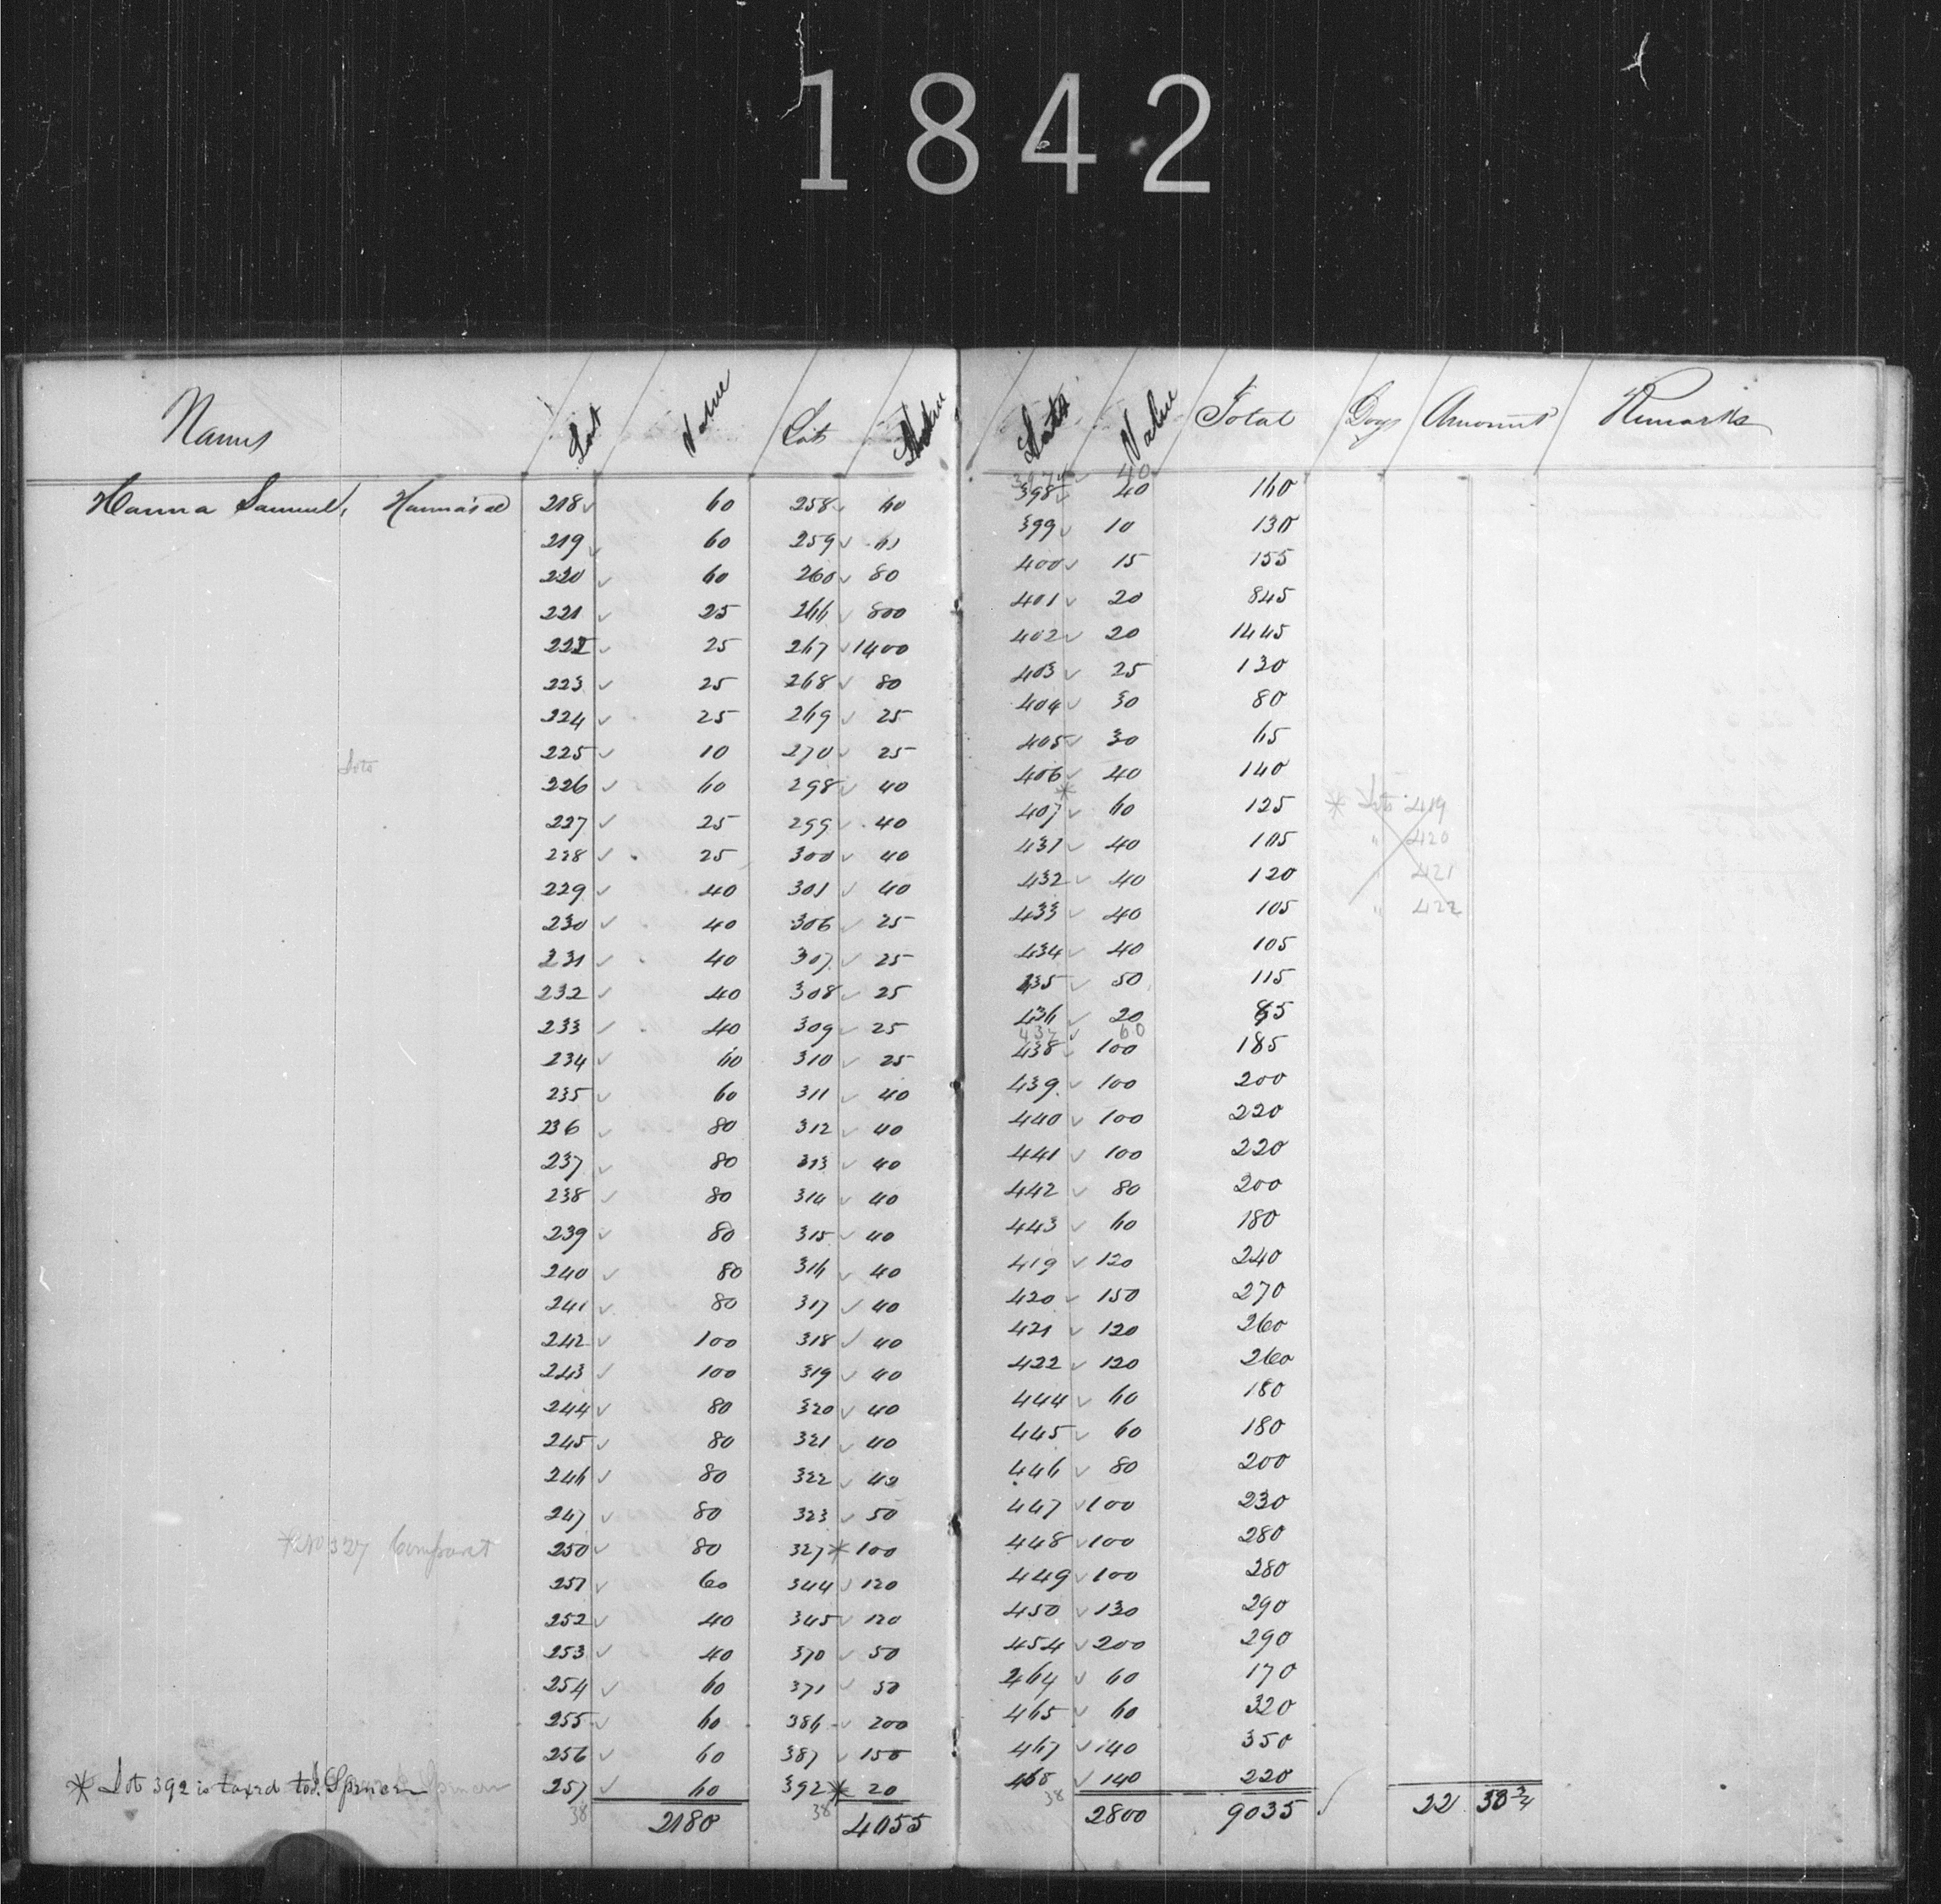 1842
Names Lot Value Lots Value Lots Value Total Dogs Amount Remarks
397 40
Hanna Samuel, 218 60 258 60 398 40 160
219 60 259 60 399 10 130
220 60 260 80 400 15 155
221 25 266 800 401 20 845
222 25 267 1400 402 20 1445
223 25 268 80 403 25 130
224 25 269 25 404 30 80
225 10 270 25 405 30 65
Lots
226 60 298 40 406 40 140
227 25 299 40 407 * 60 125 * Lots 419
228 25 300 40 431 40 105 " 420
229 40 301 40 432 40 120 421
230 40 306 25 433 40 105 " 422
231 40 307 25 434 40 105
232 40 308 25 435 50 115
233 40 309 25 436 20 85
437 60
234 60 310 25 438 100 185
235 60 311 40 439 100 200
236 80 312 40 440 100 220
237 80 313 40 441 100 220
238 80 314 40 442 80 200
239 80 315 40 443 60 180
240 80 316 40 419 120 240
241 80 317 40 420 150 270
242 100 318 40 421 120 260
243 100 319 40 422 120 260
244 80 320 40 444 60 180
245 80 321 40 445 60 180
246 80 322 40 446 80 200
247 80 323 50 447 100 230
* No 327 250 80 327 * 100 448 100 280
251 60 344 120 449 100 280
252 40 345 120 450 130 290
253 40 370 50 454 200 290
254 60 371 50 464 60 170
255 60 386 200 465 60 320
256 60 387 150 467 140 350
* Lot 392 is taxed to J. Spencer 257 60 392 * 20 468 140 220
38 2180 38 4055 38 2800 9035 22 38 3/4